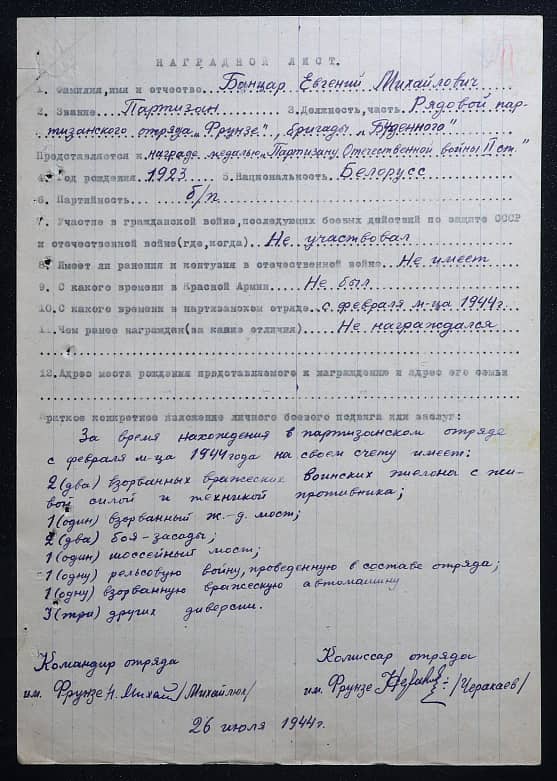 НАГРАДНОЙ ЛИСТ.
1. Фамилия,имя и отчество. Банцар Евгений Михайлович
2. Звание Партизан 3.Должность,часть. Рядовой пар-
тизанского отряда „Фрунзе", бригады „Буденного"
Представляется к награде медалью „Партизану Отечественной войны II ст."
4. Год рождения 1923 5.Национальность Белорусс
6. Партийность б/п
7. Участие в гражданской войне,последующих боевых действий по защите СССР
и отечественной войне(где,когда). Не участвовал
8. Имеет ли ранения и контузия в отечественной войне Не имеет
9. С какого времени в Красной Армии Не был
10. С какого времени в партизанском отряде с февраля м-ца 1944г.
11. Чем ранее награжден(за какие отличия). Не награждался
12. Адрес места рождения представляемого к награждению и адрес его семьи
Краткое конкретное изложение личного боевого подвига или заслуг:
За время нахождения в партизанском отряде
с февраля м-ца 1944 года на своем счету имеет:
2 (два) взорванных вражеских воинских эшелона с жи-
вой силой и техникой противника;
1 (один) взорванный ж.-д. мост;
2 (два) боя-засады;
1 (один) шоссейный мост;
1 (одну) рельсовую войну, проведенную в составе отряда;
1 (одну) взорванную вражескую автомашину
3 (три) других диверсии.
Командир отряда Комиссар отряда
им. Фрунзе /Михайлюк/ им. Фрунзе /Черакаев/
26 июля 1944г.